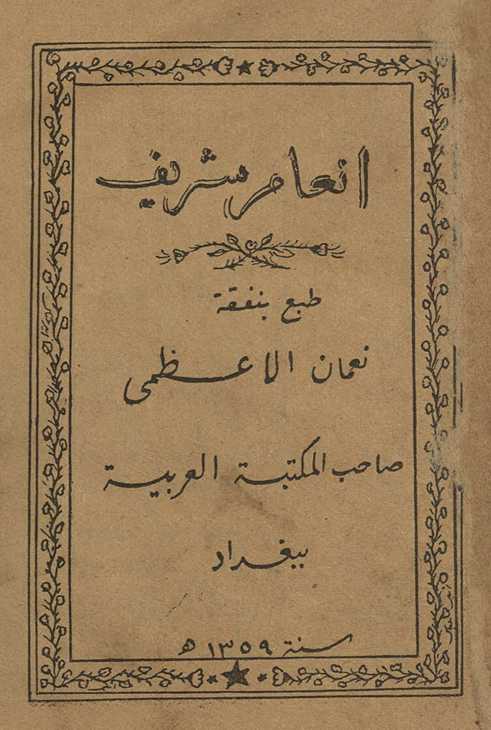 انعام شريف
طبع بنفقة
نعمان الاعظمى
صاحب المكتبة العربية
ببغداد
سنة ١٣٥٩ ه